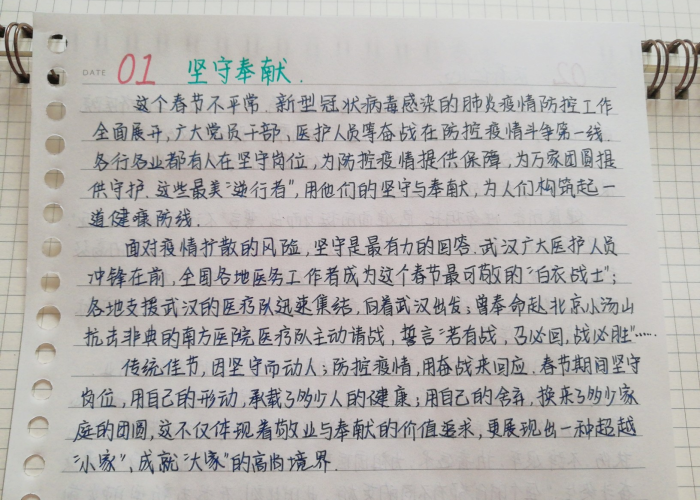 DATE 01 坚守奉献.
这个春节不平常.新型冠状病毒感染的肺炎疫情防控工作
全面展开,广大党员干部、医护人员等奋战在防控疫情斗争第一线.
各行各业都有人在坚守岗位,为防控疫情提供保障,为万家团圆提
供守护.这些最美“逆行者”,用他们的坚守与奉献,为人们构筑起一
道健康防线.
面对疫情扩散的风险,坚守是最有力的回答.武汉广大医护人员
冲锋在前,全国各地医务工作者成为这个春节最可敬的“白衣战士”;
各地支援武汉的医疗队迅速集结,向着武汉出发;曾奉命赴北京小汤山
抗击非典的南方医院医疗队主动请战,誓言“若有战,召必回,战必胜”……
传统佳节,因坚守而动人;防控疫情,用奋战来回应.春节期间坚守
岗位,用自己的形动,承载了多少人的健康;用自己的舍弃,换来了多少家
庭的团圆,这不仅体现着敬业与奉献的价值追求,更展现出一种超越
“小家”、成就“大家”的高尚境界.